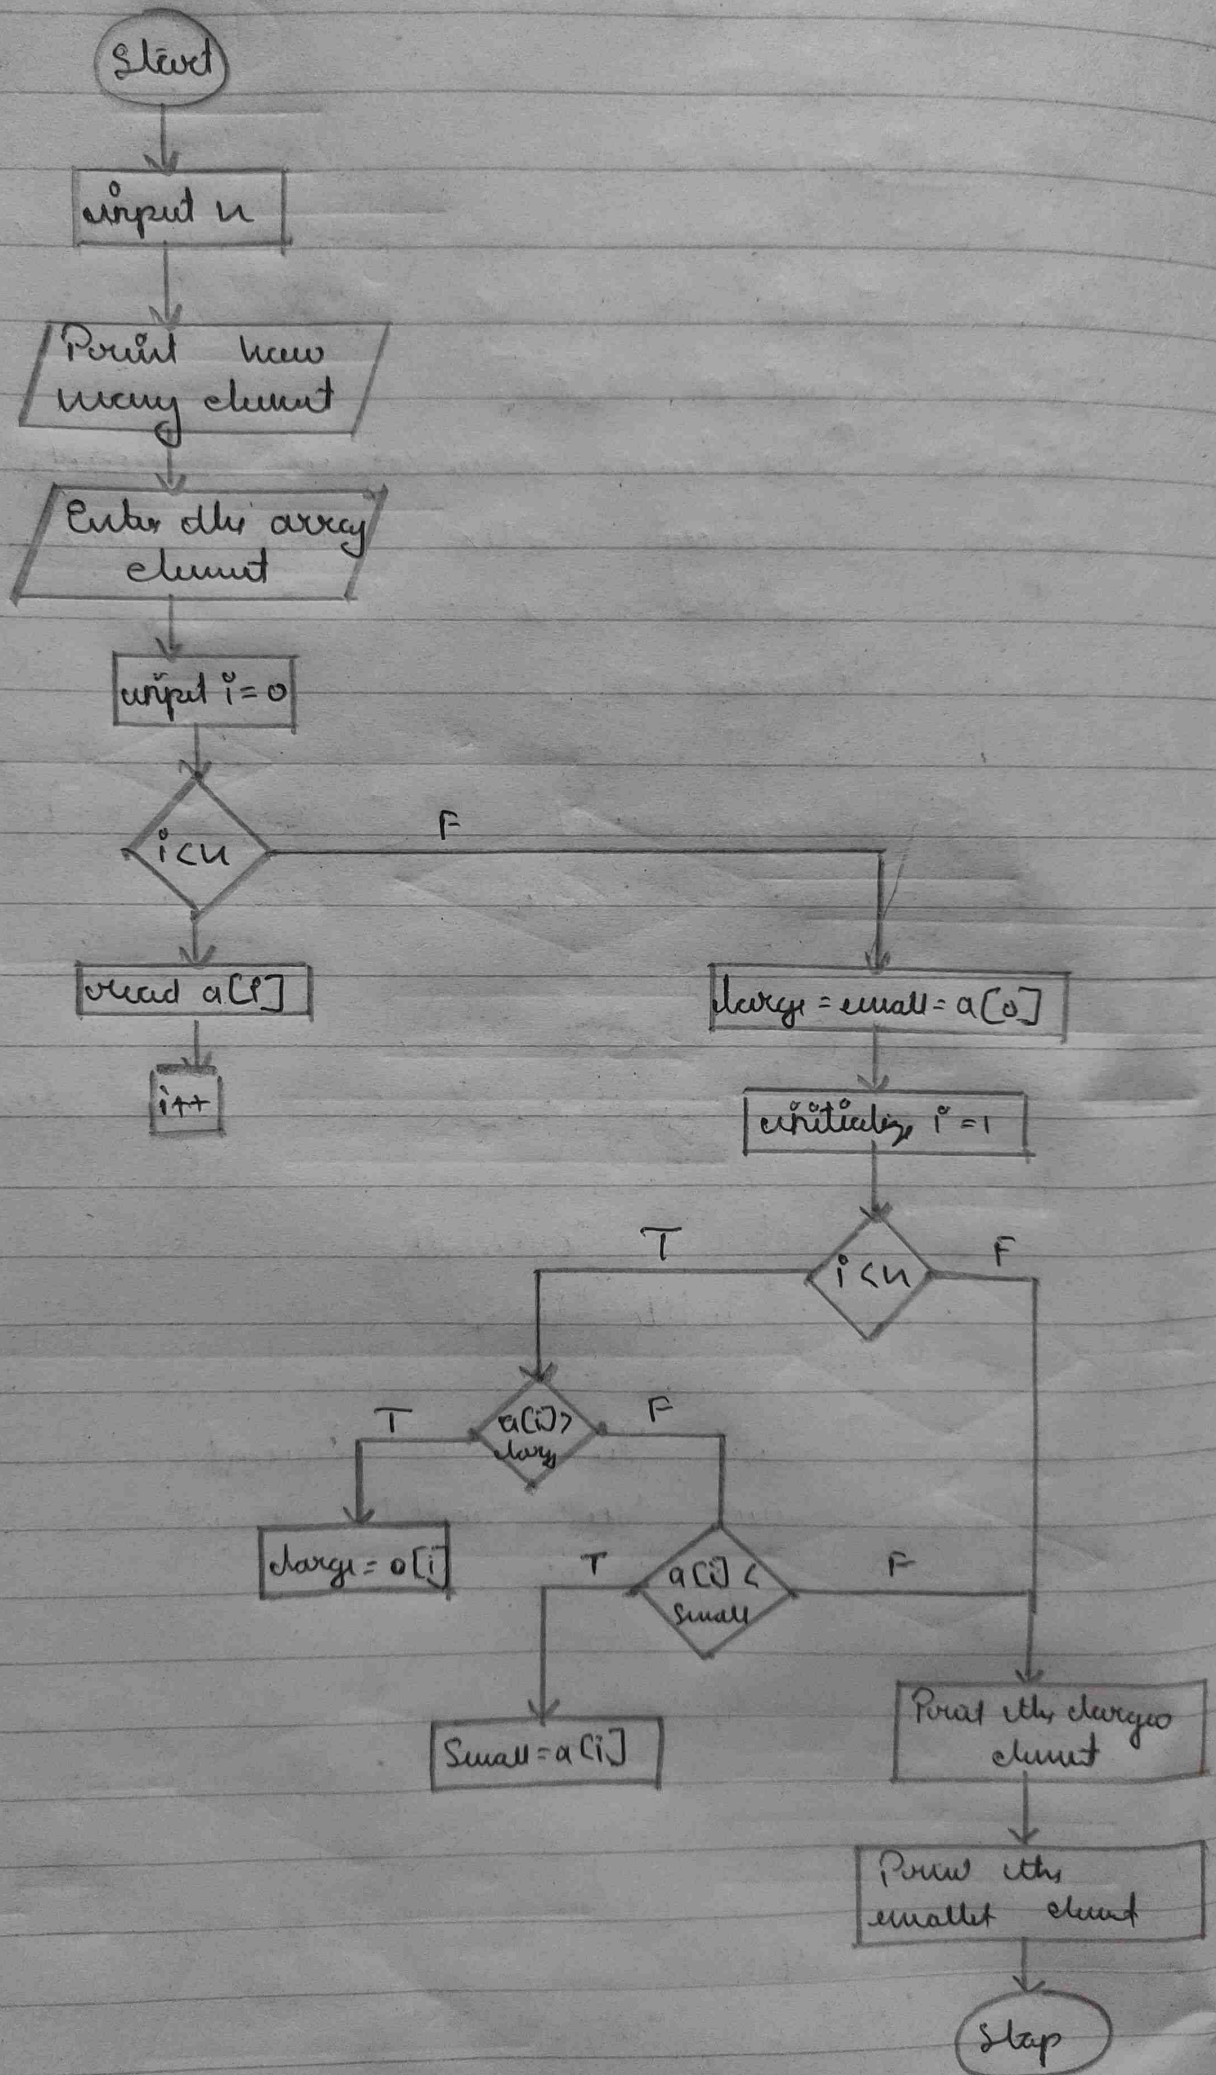 Start
input n
Print how
many element
Enter the array
element
input i=0
i<n
F
read a[i]
large = small = a[0]
i++
initialize i=1
T
i<n
F
T
a[i]>
large
F
large = a[i]
T
a[i]<
small
F
Small = a[i]
Print the larges
element
Print the
smallest element
Stop